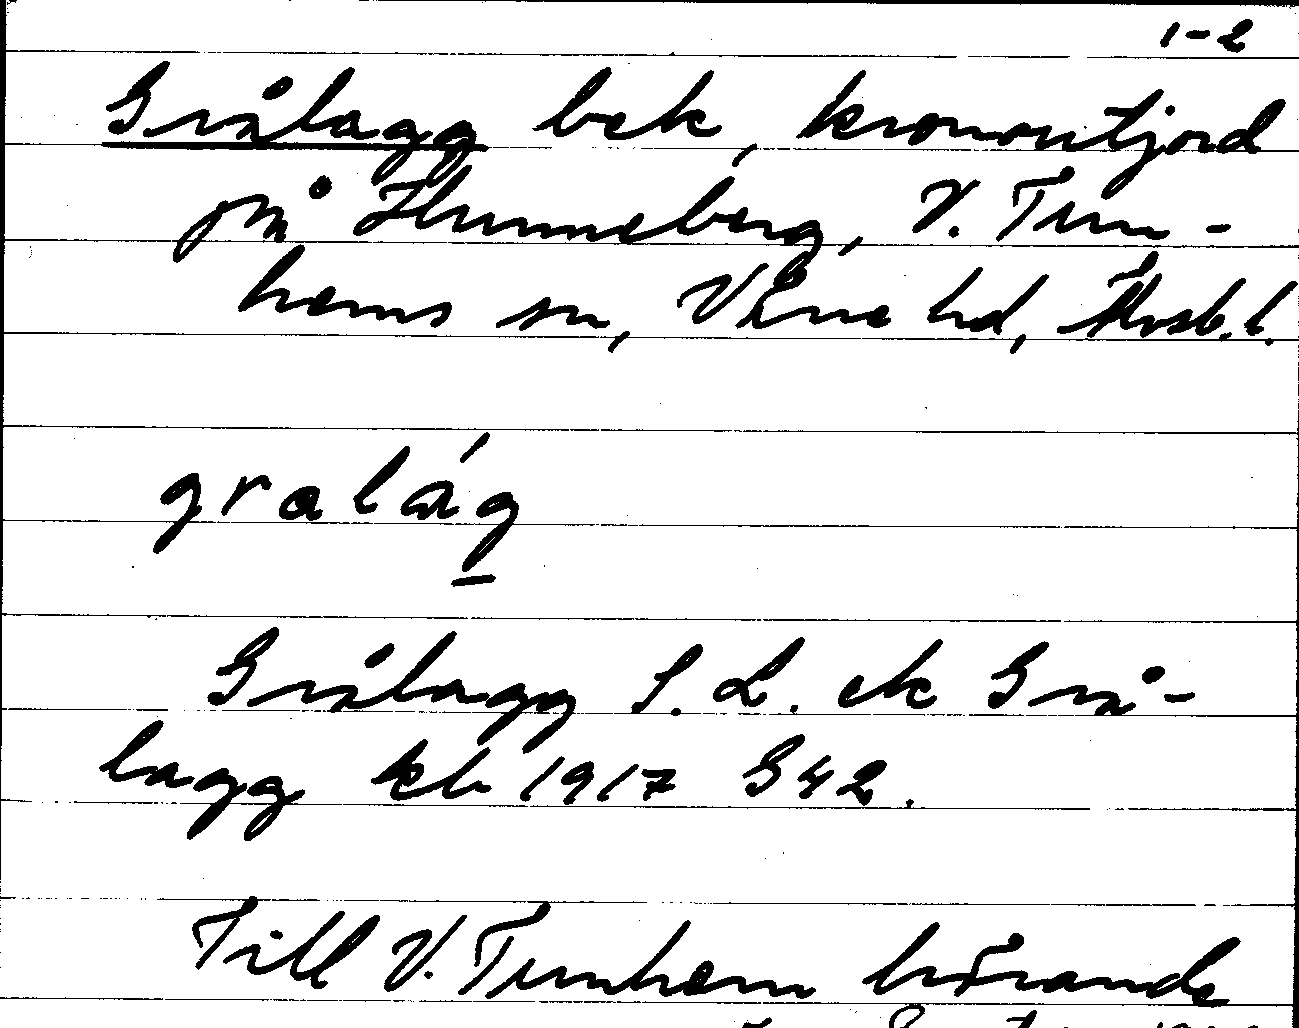 1-2
Grålagg bek, kronoutjord
på Hunneberg, V. Tun-
hems sn, Väne hd, Älvsb. l.
gralág
Grålagg S. L. ek Grå-
lagg kb 1917 S42.
Till V. Tunhem hörande